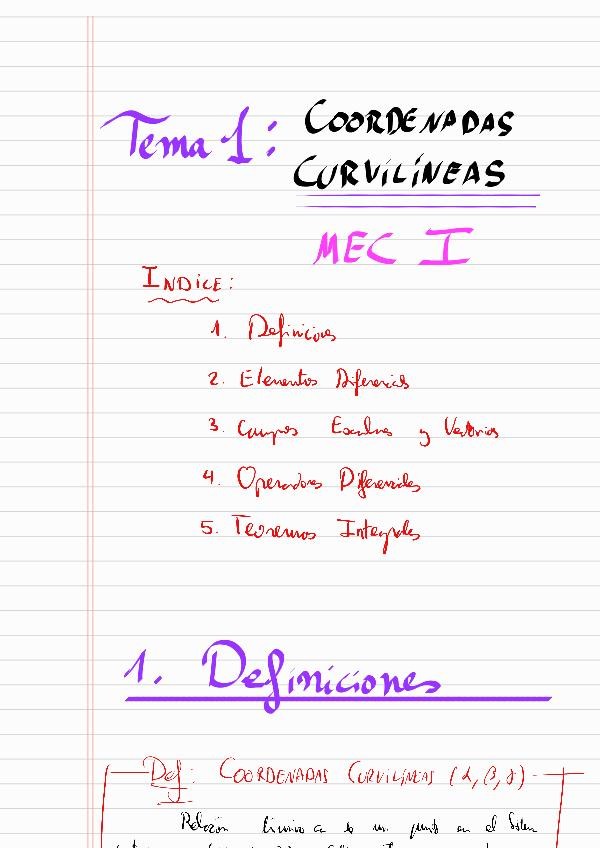 Tema 1: COORDENADAS
CURVILÍNEAS
MEC I
INDICE:
1. Definiciones
2. Elementos Diferenciales
3. Campos Escalares y Vectoriales
4. Operadores Diferenciales
5. Teoremas Integrales
1. Definiciones
Def: COORDENADAS CURVILÍNEAS (α, β, γ)
Relación de un punto en el